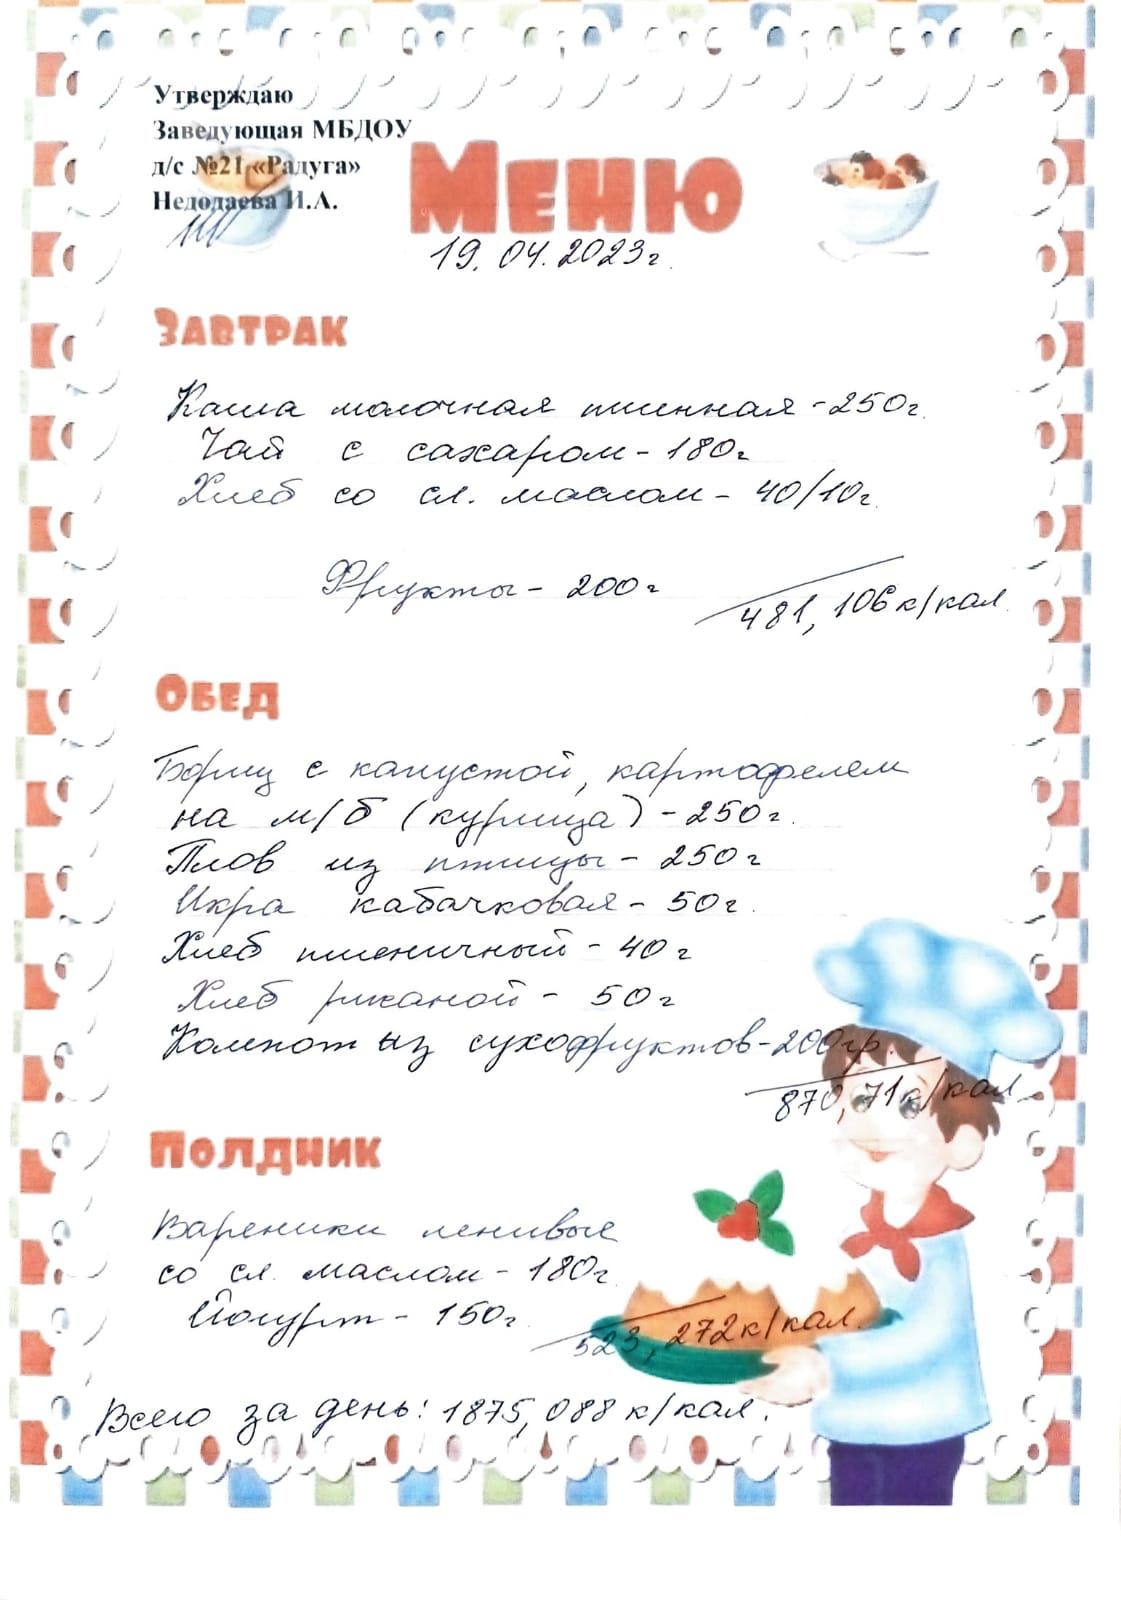 Утверждаю
Заведующая МБДОУ
д/с №21 «Радуга»
Недодаева И.А.
Меню
19.04.2023г.
Завтрак
Каша молочная пшенная - 250г.
Чай с сахаром - 180г
Хлеб со сл. маслом - 40/10г.
Фрукты - 200г
481,106 к/кал.
Обед
Борщ с капустой, картофелем
на м/б (курица) - 250г.
Плов из птицы - 250г
Икра кабачковая - 50г.
Хлеб пшеничный - 40г
Хлеб ржаной - 50г
Компот из сухофруктов - 200гр.
870,71 к/кал
Полдник
Вареники ленивые
со сл. маслом - 180г.
Йогурт - 150г.
523,272 к/кал.
Всего за день: 1875,088 к/кал.